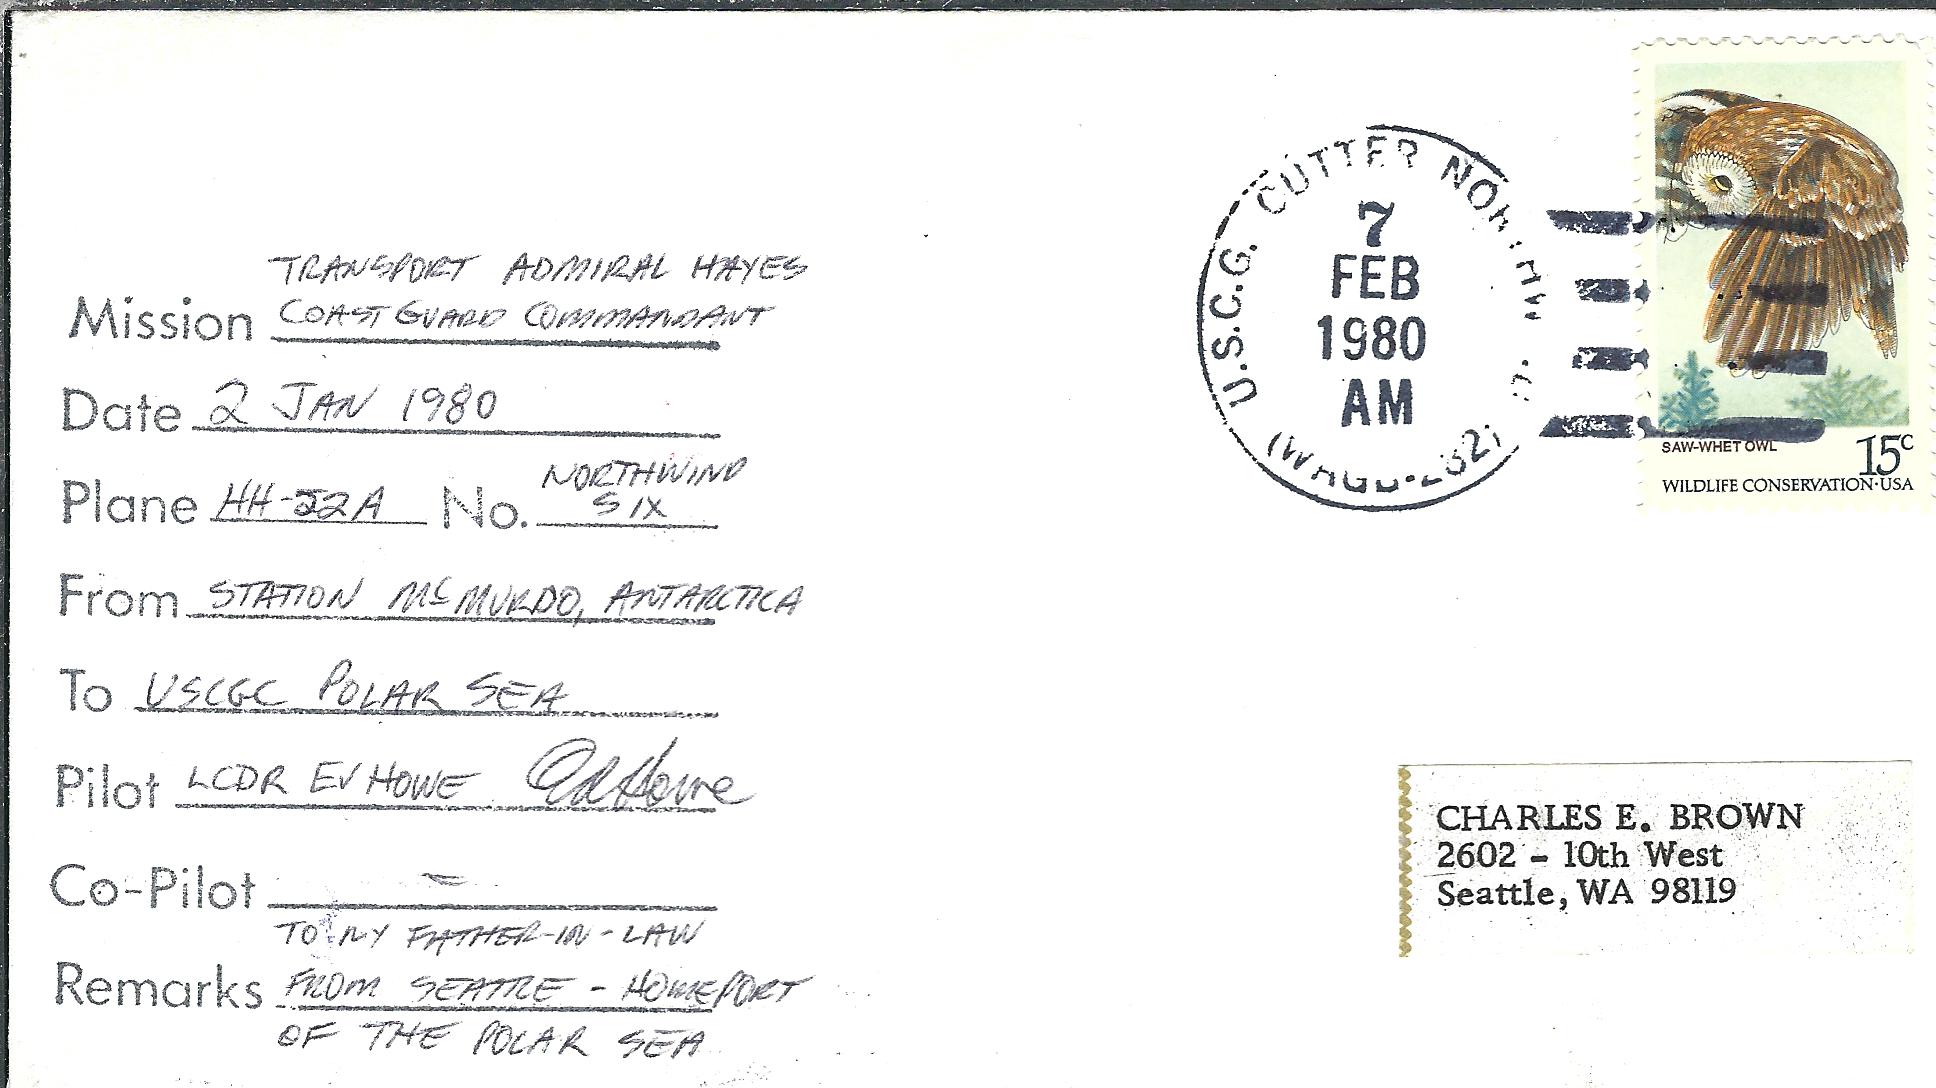 TRANSPORT ADMIRAL HAYES
Mission COAST GUARD COMMANDANT
Date 2 JAN 1980
Plane HH-52A No. NORTHWIND SIX
From STATION McMURDO, ANTARCTICA
To USCGC POLAR SEA
Pilot LCDR EV HOWE
Co-Pilot -
TO MY FATHER-IN-LAW
Remarks FROM SEATTLE - HOMEPORT
OF THE POLAR SEA
U.S.C.G. CUTTER
7
FEB
1980
AM
SAW-WHET OWL
15c
WILDLIFE CONSERVATION·USA
CHARLES E. BROWN
2602 - 10th West
Seattle, WA 98119